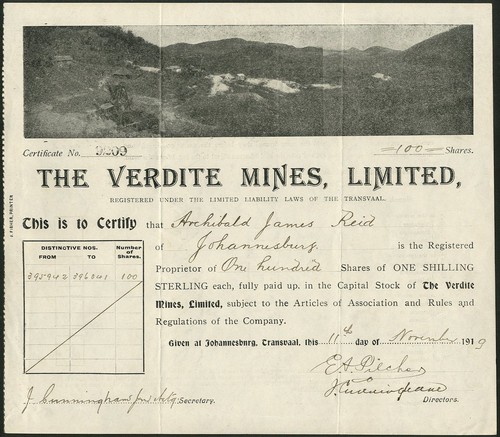 Certificate No. 3209
100 Shares.
THE VERDITE MINES, LIMITED,
REGISTERED UNDER THE LIMITED LIABILITY LAWS OF THE TRANSVAAL.
This is to Certify that Archibald James Reid
of Johannesburg is the Registered
Proprietor of One hundrid Shares of ONE SHILLING
STERLING each, fully paid up, in the Capital Stock of The Verdite
Mines, Limited, subject to the Articles of Association and Rules and
Regulations of the Company.
Given at Johannesburg, Transvaal, this 11th day of November 1919
DISTINCTIVE NOS. Number of Shares.
FROM TO
395942 396041 100
E.A. Pilcher
J. Cunningham
Directors.
J. Cunningham Secretary.